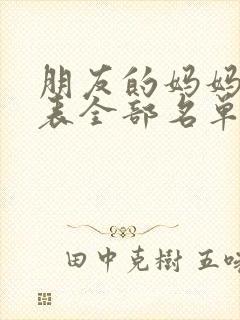 朋友的妈妈
表全部名单
田中克樹 五